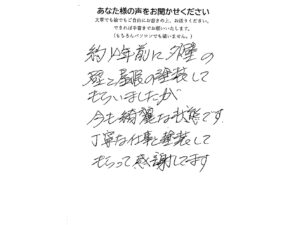 あなた様の声をお聞かせください
文章でも絵でもご自由にお書きの上、お送りください。
できれば手書きでお願いいたします。
(もちろんパソコンでも構いません。)
約12年前に外壁の
壁と屋根の塗装して
もらいましたが
今も綺麗な状態です
丁寧な仕事と塗装して
もらって感謝してます